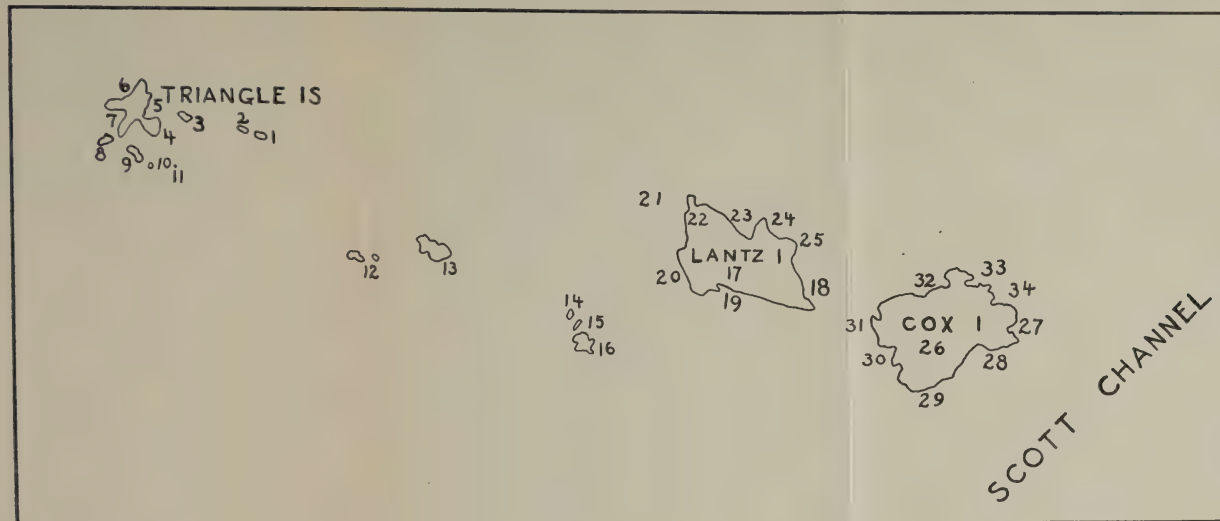 6
TRIANGLE IS
5
7
4
3
2
1
8
9
10
11
12
13
14
15
16
21
22
23
24
25
LANTZ I
17
20
19
18
32
33
34
31
COX I
27
26
30
28
29
SCOTT CHANNEL